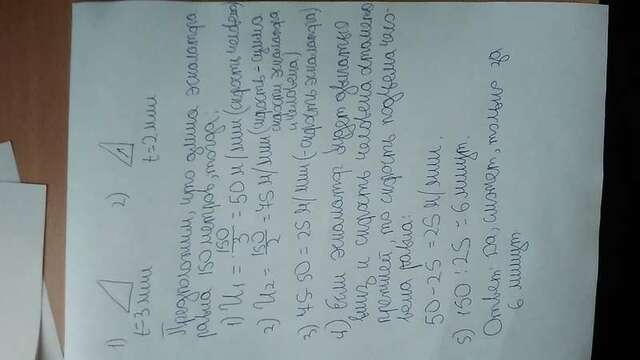 1) 2)
t=3 мин t=2 мин
Предположим, что длина эскалатора
равна 150 метров, тогда:
1) U₁ = 150/3 = 50 м/мин (скорость человека)
2) U₂ = 150/2 = 75 м/мин (скорость - сумма
скорости эскалатора
и человека)
3) 75-50 = 25 м/мин (-скорость эскалатора)
4) Если эскалатор будет двигаться
вниз и скорость человека останется
прежней, то скорость подъема чело-
века равна:
50-25 = 25 м/мин.
5) 150 : 25 = 6 минут.
Ответ: Да, сможет, только за
6 минут